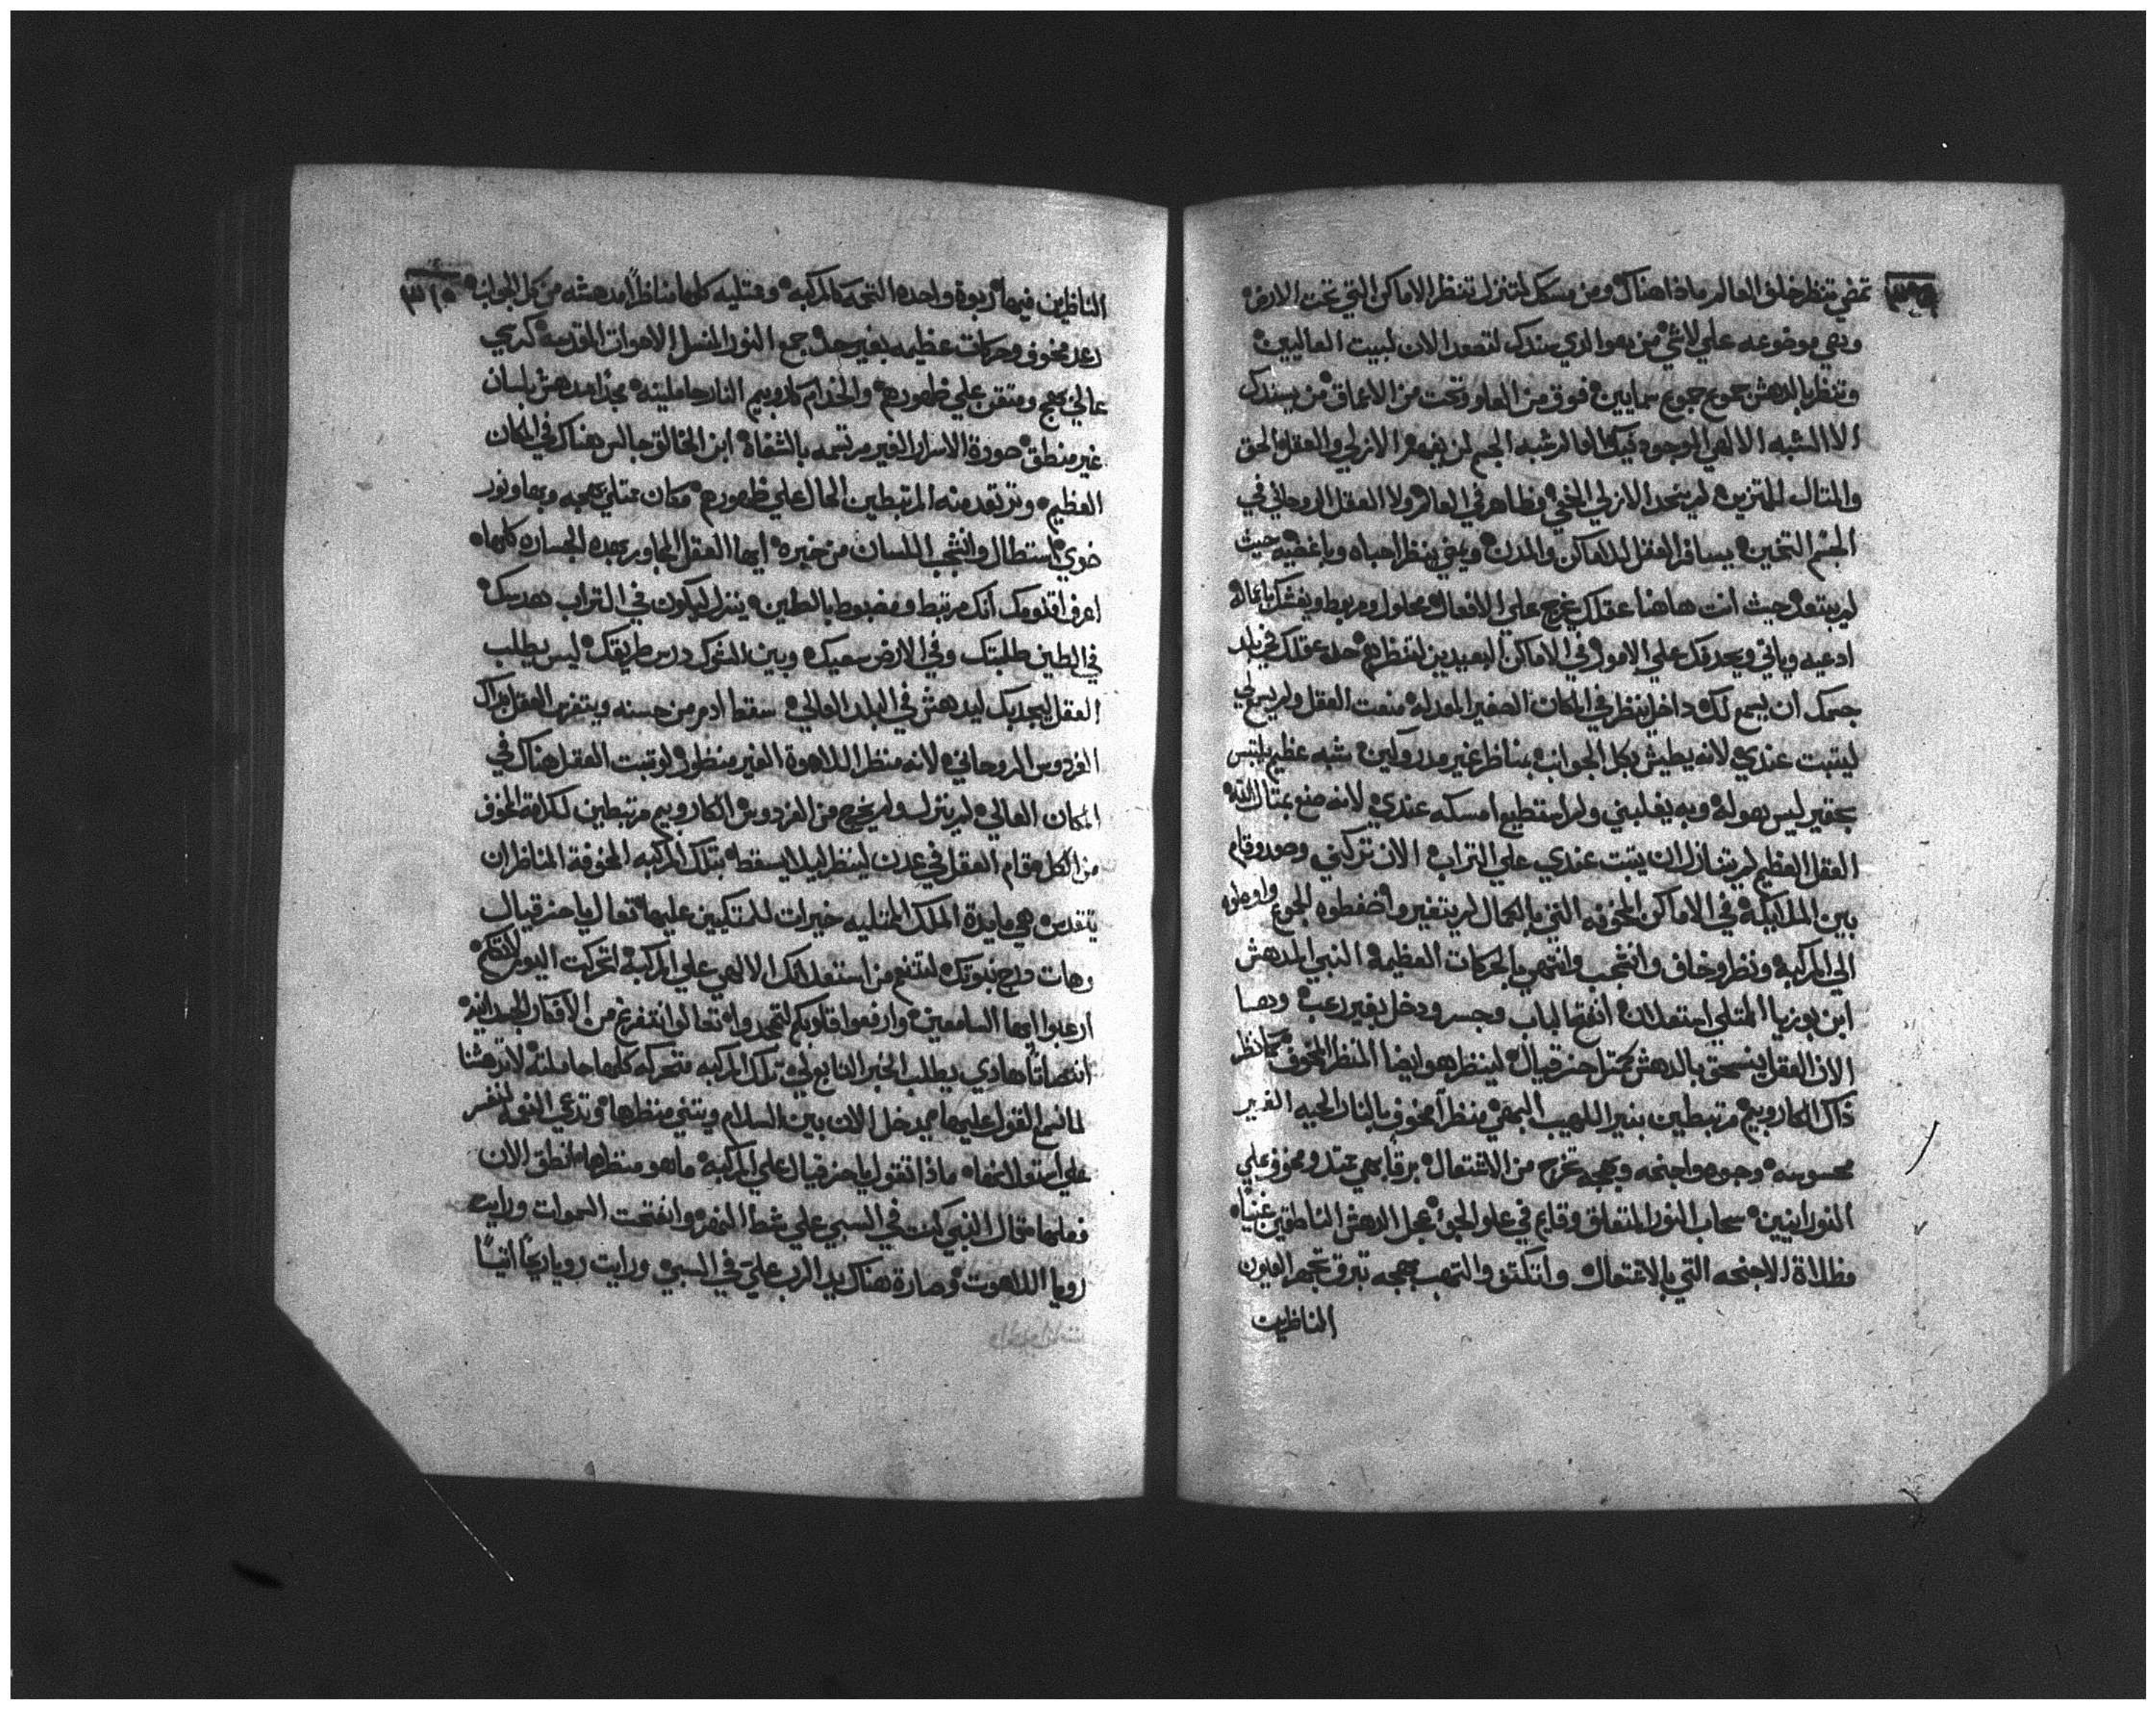 تمضي تنظر خلف العالم ماذا هناك ومن مسكك لتنزل تنظر الاماكن التي تحت الارض
وهي موضوعه علي لاشي من هو الذي سندك لتصعد الان لبيت العاليين
وتنظر بالدهش جموع جموع سمايين فوق من العلو وتحت من الاعماق من يسندك
الا الشبه الالهي الموجود فيك شبه الجسم لن يفهم الازلي والعقل الحق
والمتال المتزين لم يتحد الازلي الخفي وظاهر في العالم ولا العقل الروحاني في
الجسم التخين يسافر العقل لاماكن والمدن ويمضي ينظر احباه وباغضيه حيث
لم يبتعد حيث انت هاهنا عقلك يخرج علي الافعال محلول ومربوط
ادعيه وياتي ويحدثك علي الامور في الاماكن البعيدين لتنظرهم حد عقلك في بلد
جسمك ان يسمع لك داخل ينظر في المكان الصغير المعد له منعت العقل ولم يسمع لي
ليتبت عندي لانه يطيش بكل الجوانب بمناظر غير مدروكين شبه عظيم يلتبس
بحقير ليس هو له وبه يغلبني ولم استطيع امسكه عندي لانه صنع بمتال الله
العقل العظيم لم يتنازل ان يتبت عندي علي التراب الان تركني وصعد وقام
بين الملايكه في الاماكن المخوفه التي بالكمال لم يتغير واضغطوه الجموع واوصلوه
الي المركبه ونظر وخاف وانتجب وانتهر بالحركات العظيمه النبي المدهش
ابن بوزيا الممتلي استعلان انفتح الباب وجسر ودخل بغير رعب وهما
الان العقل ينسحق بالدهش كمتل حزقيال لينظر هو ايضا المنظر المخوف كما نظر
ذاك الكاروبيم مرتبطين بنير اللهيب البهي منظرا مخوف بالنار الحيه الغير
محسوسه وجوه واجنحه وبهجه تخرج من الاشتعال برقا بهي ممتد ومخوف علي
النورانيين سحاب النور المتعلق وقايم في علو الجو عجل الدهش الناطقين
مظلاة الاجنحه التي بالاغتمال والتهب بهجه تبرق تجهر العيون
الناظرين
الناظرين فيها ربوة واحده التحمه كالمركبه وممتليه كلها مناظرا مدهشه من كل الجوانب
رعد مخوف وحركات عظيمه بغير حد جمع النور المنسل الاهوات المقدسه كرسي
عالي بهيج ومتقن علي ظهورهم والخدام كاروبيم النار حاملينه مجدا مدهش بلسان
غير منطق حوزة الاسرار الغير مرتسمه بالشفاة ابن الخالق جالس هناك في المكان
العظيم وترتعد منه المرتبطين الحال علي ظهورهم مكان ممتلي بهجه وبها ونور
ضوي استطال وانتجب اللسان من خبره ايها العقل المجاور بهده الجساره كلها
اعرف اقنومك انك مرتبط ومضبوط بالطين ينزل ليكون في التراب هدسك
في الطين طلبتك وفي الارض سعيك وبين الشوك درس طريقك ليس يطلب
العقل ليجد بك ليدهش في البلد العالي سقط ادم من حسنه ويتفرس العقل بذاك
الفردوس الروحاني لانه منتظر اللاهوة الغير منظور لو تبت العقل هناك في
المكان العالي لم ينزل ولم يخرج من الفردوس الكاروبيم مرتبطين لكلامة الخوف
من الكل مقام العقل في عدن لينظر ليلا يسقط بتلك المركبه المخوفة المناظر ان
يتقدس هي مايدة الملك الممتليه خيرات للمتكيين عليها تعال يا حزقيال
وهات درج نبوتك لنتنعم من استعلانك الالهي علي المركبه اتحركت اليوم لاتكلم
ارعبوا ايها السامعين وارفعوا قلوبكم لتمجدواه تعالوا نتفرغ من الافكار الجسدانيه
انتصاتا هادي يطلب الخبر النابع لي تلك المركبه متحركه كلها حاملته لاتدهشنا
لما نسمع القول عليها ميدخل الان بين السلام وينتني منظرها وتدعي النعمه لتفسر
علي استعلانها ماذا نتقول يا حزقيال علي المركبه ما هو منظرها انطق الان
فعلها فقال النبي كنت في السبي علي شط النهر وانفتحت السموات ورايت
رويا اللاهوت وصارة هناك يد الرب علي في السبي ورايت رويا ريحا اتيا